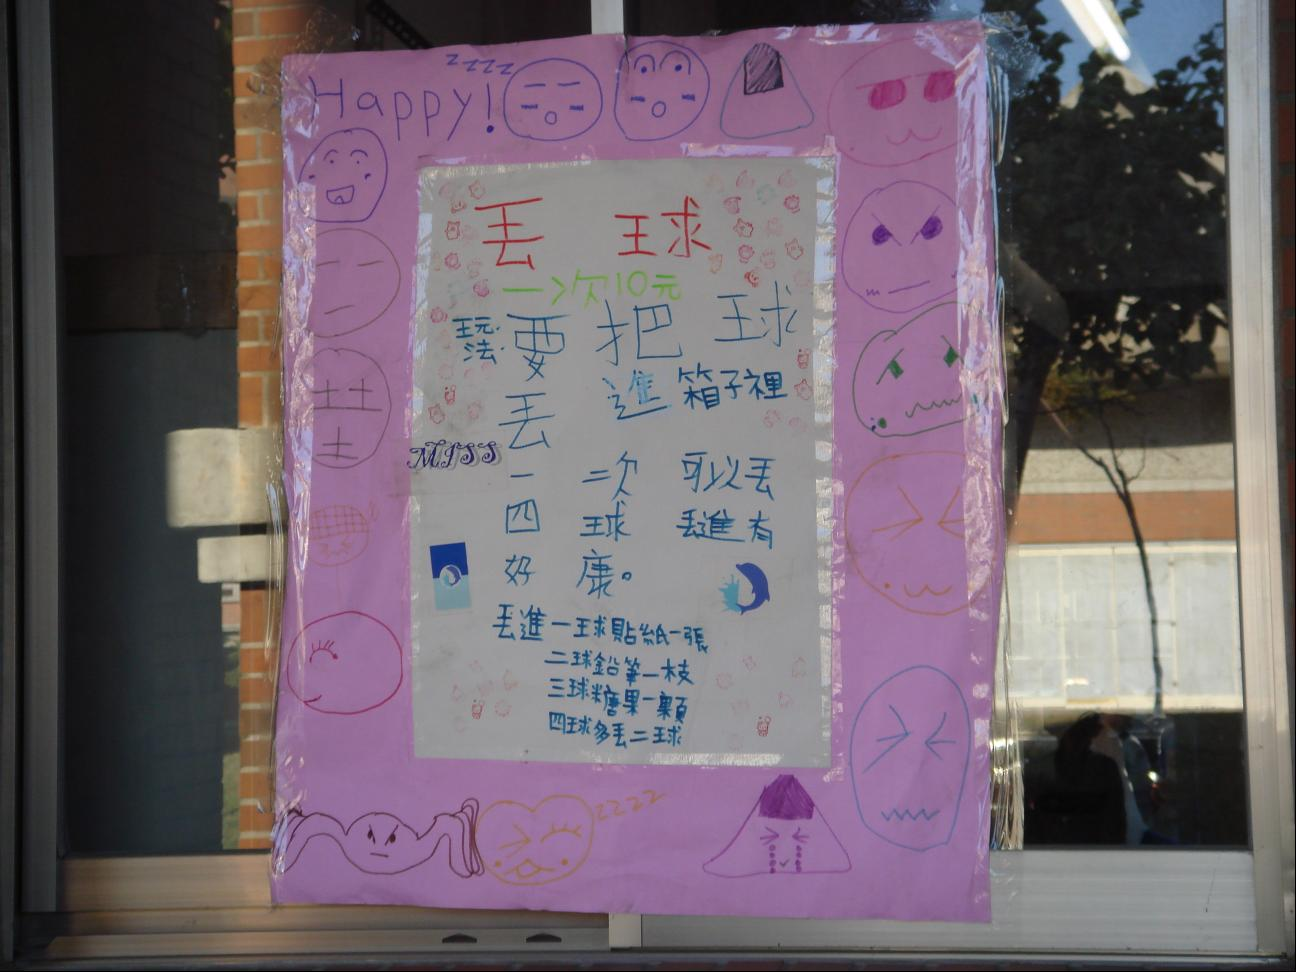 Happy!
zzzz
丟 球
一>次10元
玩法: 要把球
丟進箱子裡
MISS
一二次可以丟
四球丟進有
好康。
丟進一球貼紙一張
二球鉛筆一枝
三球糖果一顆
四球多丟二球
zzzz